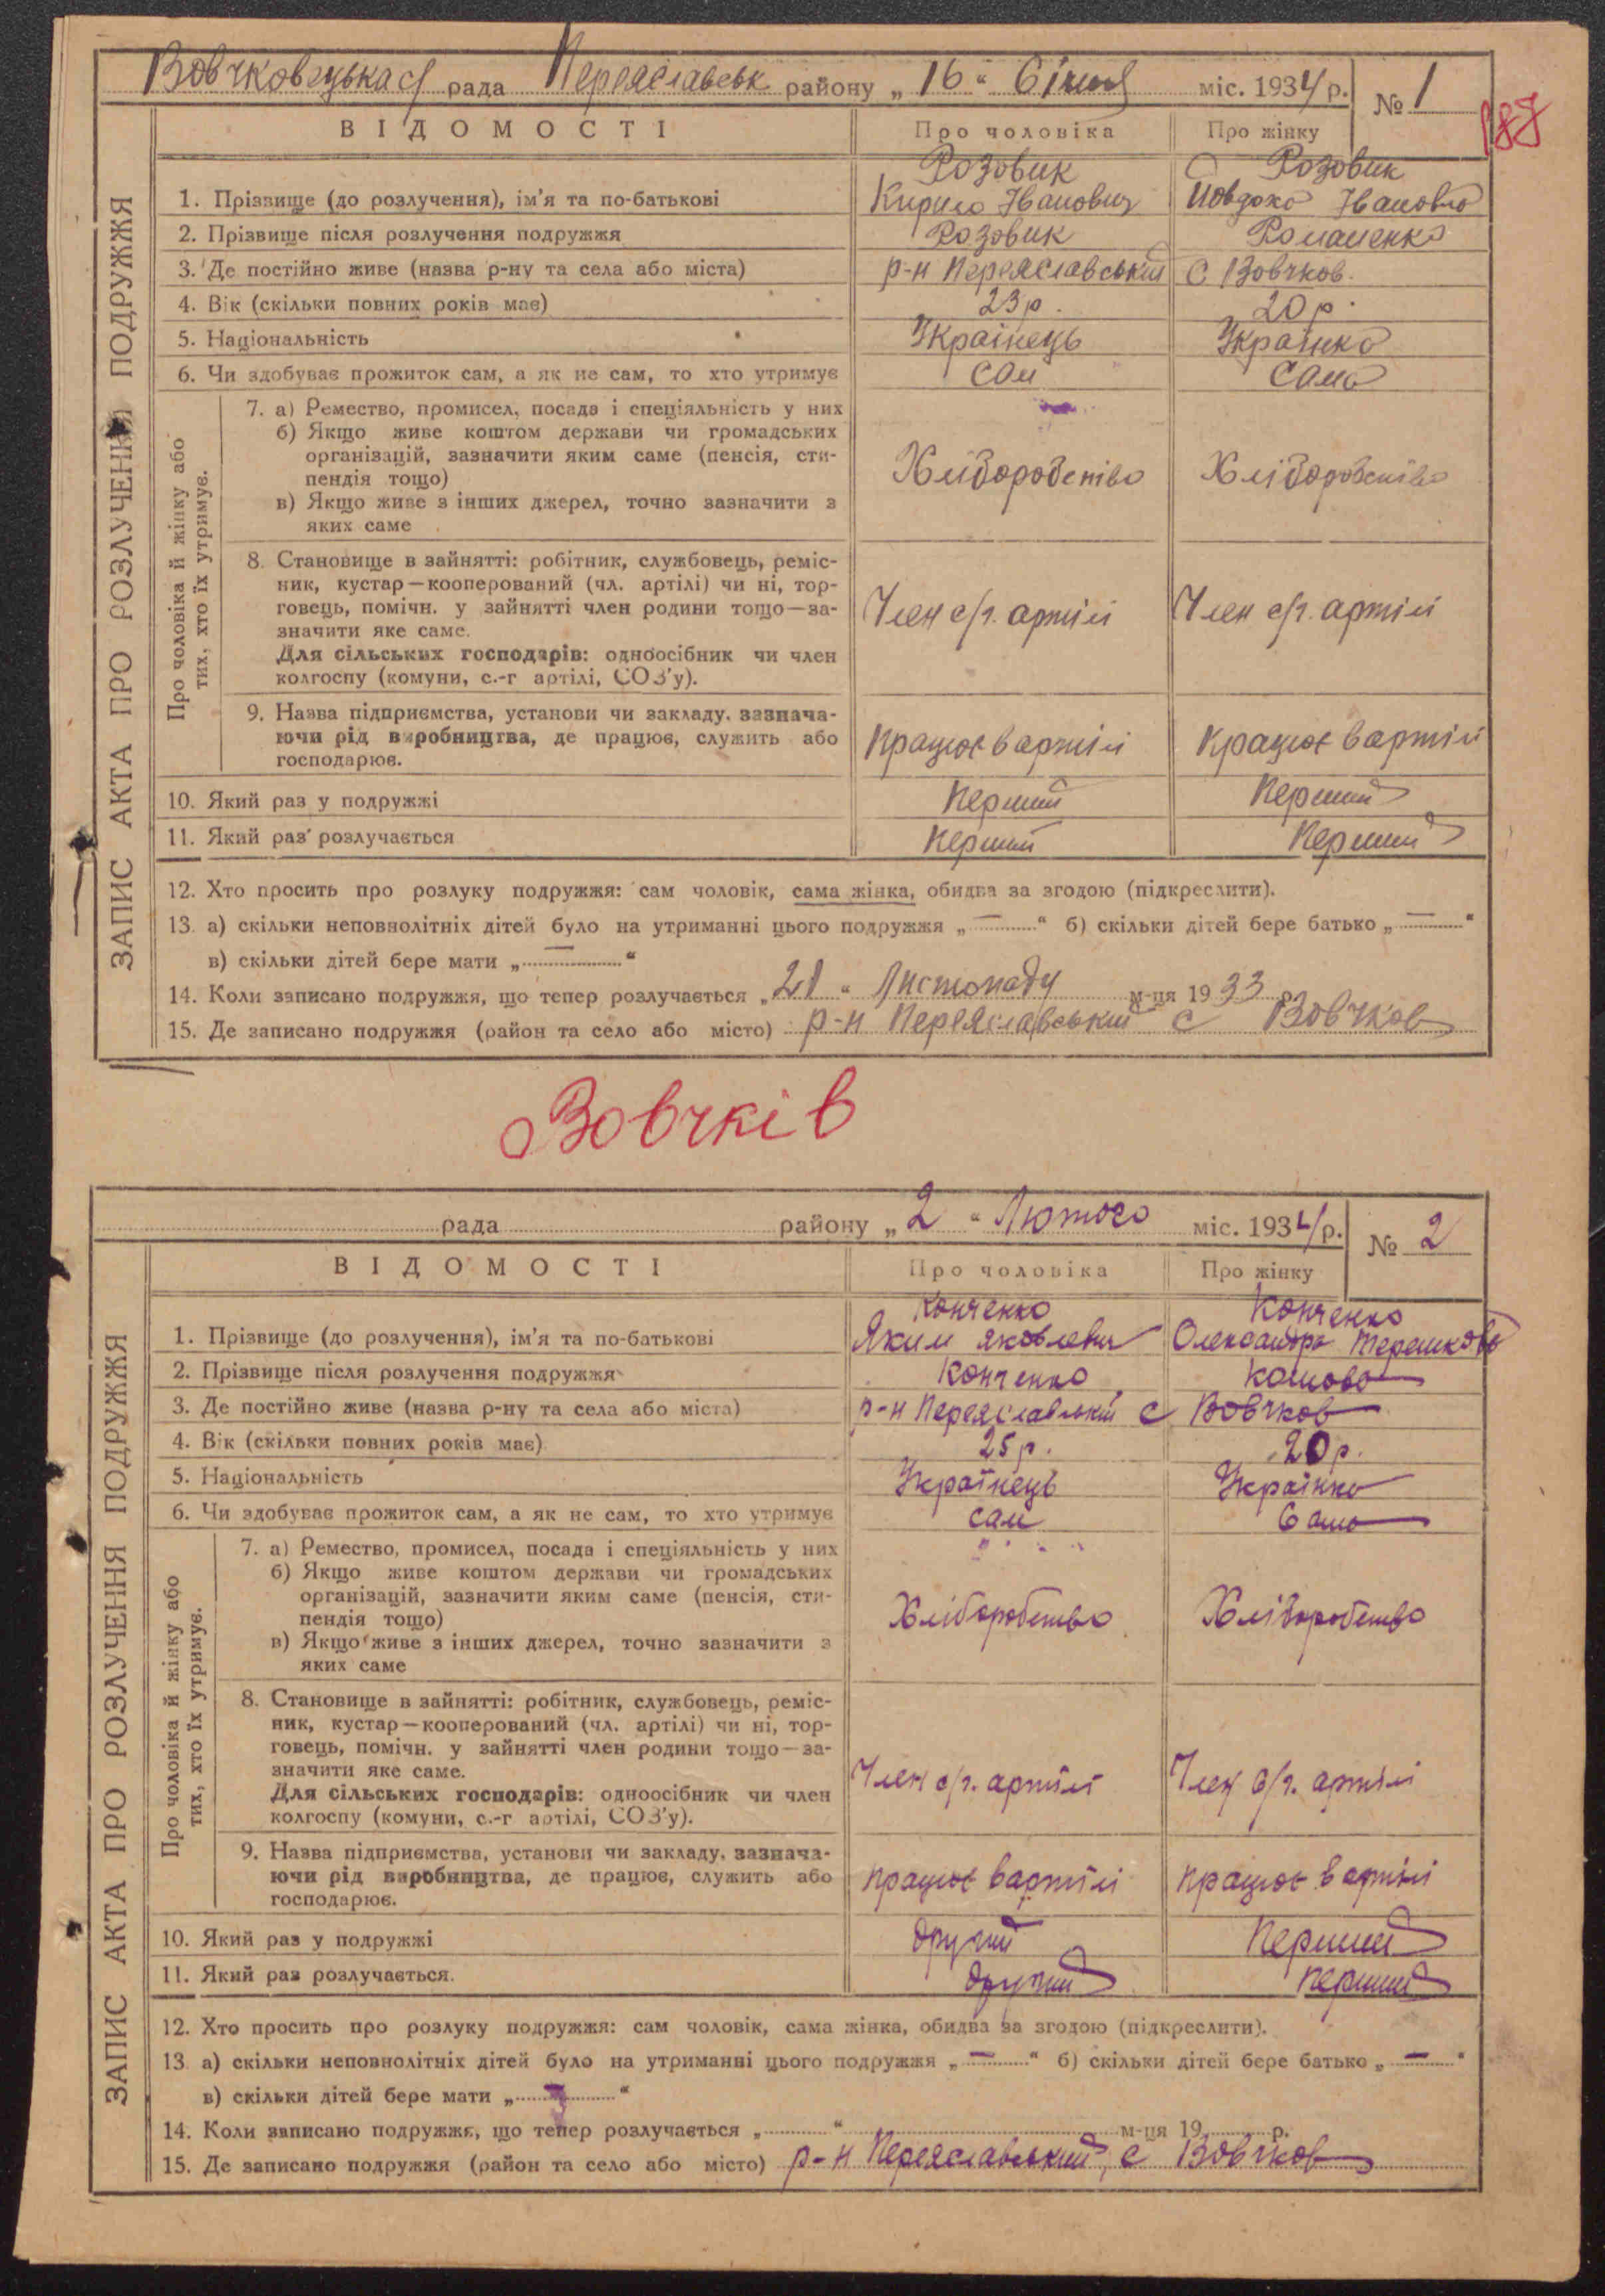 Вовчковецька с/ рада Переяславськ району „ 16 “ Січня міс. 1934 р. № 1
187
ВІДОМОСТІ Про чоловіка Про жінку
Розовик Розовик
1. Прізвище (до розлучення), ім'я та по-батькові Кирило Іванович Івановна
2. Прізвище після розлучення подружжя Розовик Романенко
3. Де постійно живе (назва р-ну та села або міста) р-н Переяславський с Вовчков.
4. Вік (скільки повних років має) 23 р. 20 р.
5. Національність Українець Українка
6. Чи здобуває прожиток сам, а як не сам, то хто утримує сам сама
ЗАПИС АКТА ПРО РОЗЛУЧЕННЯ ПОДРУЖЖЯ
Про чоловіка й жінку або
тих, хто їх утримує.
7. а) Ремество, промисел, посада і спеціяльність у них
б) Якщо живе коштом держави чи громадських
організацій, зазначити яким саме (пенсія, сти-
пендія тощо) Хліборобство Хліборобство
в) Якщо живе з інших джерел, точно зазначити з
яких саме
8. Становище в зайнятті: робітник, службовець, реміс-
ник, кустар—кооперований (чл. артілі) чи ні, тор-
говець, помічн. у зайнятті член родини тощо—за- Член с/г. артілі Член с/г. артілі
значити яке саме.
Для сільських господарів: одноосібник чи член
колгоспу (комуни, с.-г артілі, СОЗ'у).
9. Назва підприємства, установи чи закладу, зазнача-
ючи рід виробництва, де працює, служить або Працює в артілі Працює в артілі
господарює.
10. Який раз у подружжі Перший Перший
11. Який раз розлучається Перший Перший
12. Хто просить про розлуку подружжя: сам чоловік, сама жінка, обидва за згодою (підкреслити).
13. а) скільки неповнолітніх дітей було на утриманні цього подружжя „ — “ б) скільки дітей бере батько „ — “
в) скільки дітей бере мати „ — “
14. Коли записано подружжя, що тепер розлучається „ 21 “ Листопаду м-ця 1933 р.
15. Де записано подружжя (район та село або місто) р-н Переяславський с Вовчков
Вовчків
рада району „ 2 “ Лютого міс. 1934 р. № 2
ВІДОМОСТІ Про чоловіка Про жінку
Конченко Конченко
1. Прізвище (до розлучення), ім'я та по-батькові Яким Яковлевич Олександра Терешкова
2. Прізвище після розлучення подружжя Конченко
3. Де постійно живе (назва р-ну та села або міста) р-н Переяславський с Вовчков
4. Вік (скільки повних років має) 25 р. 20 р.
5. Національність Українець Українка
6. Чи здобуває прожиток сам, а як не сам, то хто утримує сам Сама
ЗАПИС АКТА ПРО РОЗЛУЧЕННЯ ПОДРУЖЖЯ
Про чоловіка й жінку або
тих, хто їх утримує.
7. а) Ремество, промисел, посада і спеціяльність у них
б) Якщо живе коштом держави чи громадських
організацій, зазначити яким саме (пенсія, сти-
пендія тощо) Хліборобство Хліборобство
в) Якщо живе з інших джерел, точно зазначити з
яких саме
8. Становище в зайнятті: робітник, службовець, реміс-
ник, кустар—кооперований (чл. артілі) чи ні, тор-
говець, помічн. у зайнятті член родини тощо—за-
значити яке саме. Член с/г. артілі Член с/г. артілі
Для сільських господарів: одноосібник чи член
колгоспу (комуни, с.-г артілі, СОЗ'у).
9. Назва підприємства, установи чи закладу, зазнача-
ючи рід виробництва, де працює, служить або працює в артілі працює в артілі
господарює.
10. Який раз у подружжі другий Перший
11. Який раз розлучається. другий перший
12. Хто просить про розлуку подружжя: сам чоловік, сама жінка, обидва за згодою (підкреслити).
13. а) скільки неповнолітніх дітей було на утриманні цього подружжя „ — “ б) скільки дітей бере батько „ — “
в) скільки дітей бере мати „ “
14. Коли записано подружжя, що тепер розлучається „ “ м-ця 19 р.
15. Де записано подружжя (район та село або місто) р-н Переяславський, с Вовчков